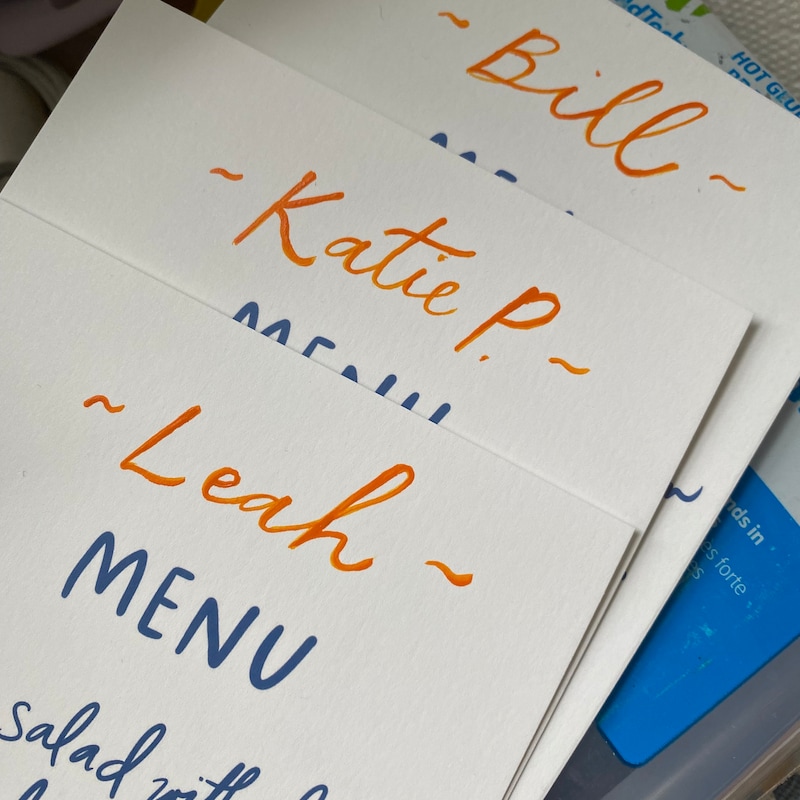 ~ Bill ~
~ Katie P. ~
MENU
~ Leah ~
MENU
salad with
HOT GLUE
nds in
es forte
es